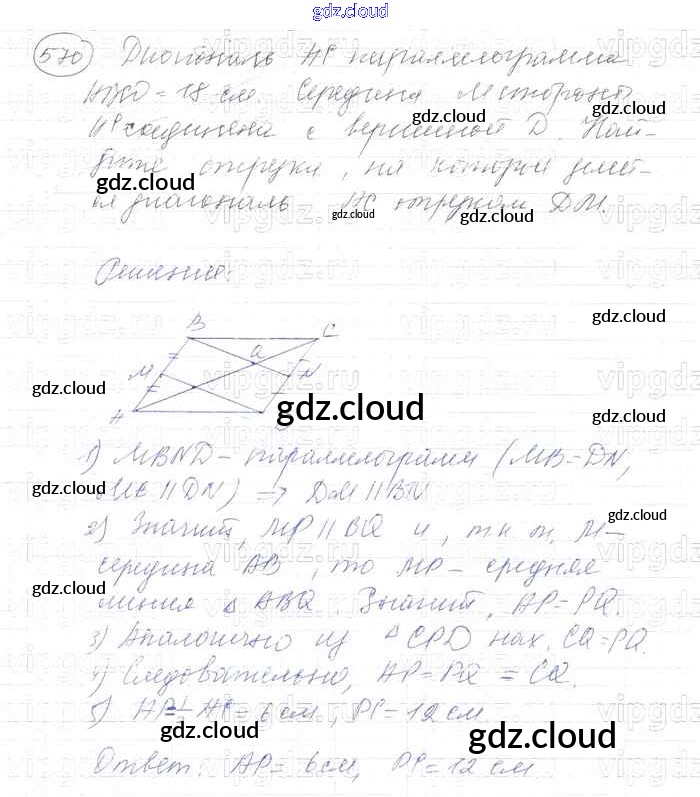 gdz.cloud
570 Диагональ АС параллелограмма
= 18 см. Середина М стороны
соединена с вершиной D. Най-
дите отрезки, на которые делит-
ся диагональ АС отрезком DM.
gdz.cloud
gdz.cloud
gdz.cloud
gdz.cloud
gdz.cloud
gdz.cloud
Решение:
gdz.cloud
B C
Q
M N
A
gdz.cloud
gdz.cloud
gdz.cloud
1) MBND – параллелограмм (MB = DN,
|| DN) => DM || BN
gdz.cloud
2) Значит, MP || BQ и, т.к т. М –
середина АВ, то МР – средняя
gdz.cloud
gdz.cloud
линия △ ABQ. Значит, AP = PQ.
3) Аналогично из △ CPD нах. CQ = PQ.
4) Следовательно, AP = PQ = CQ.
5) AP = AC = 6 см, PC = 12 см
gdz.cloud
gdz.cloud
Ответ: AP = 6 см, PC = 12 см